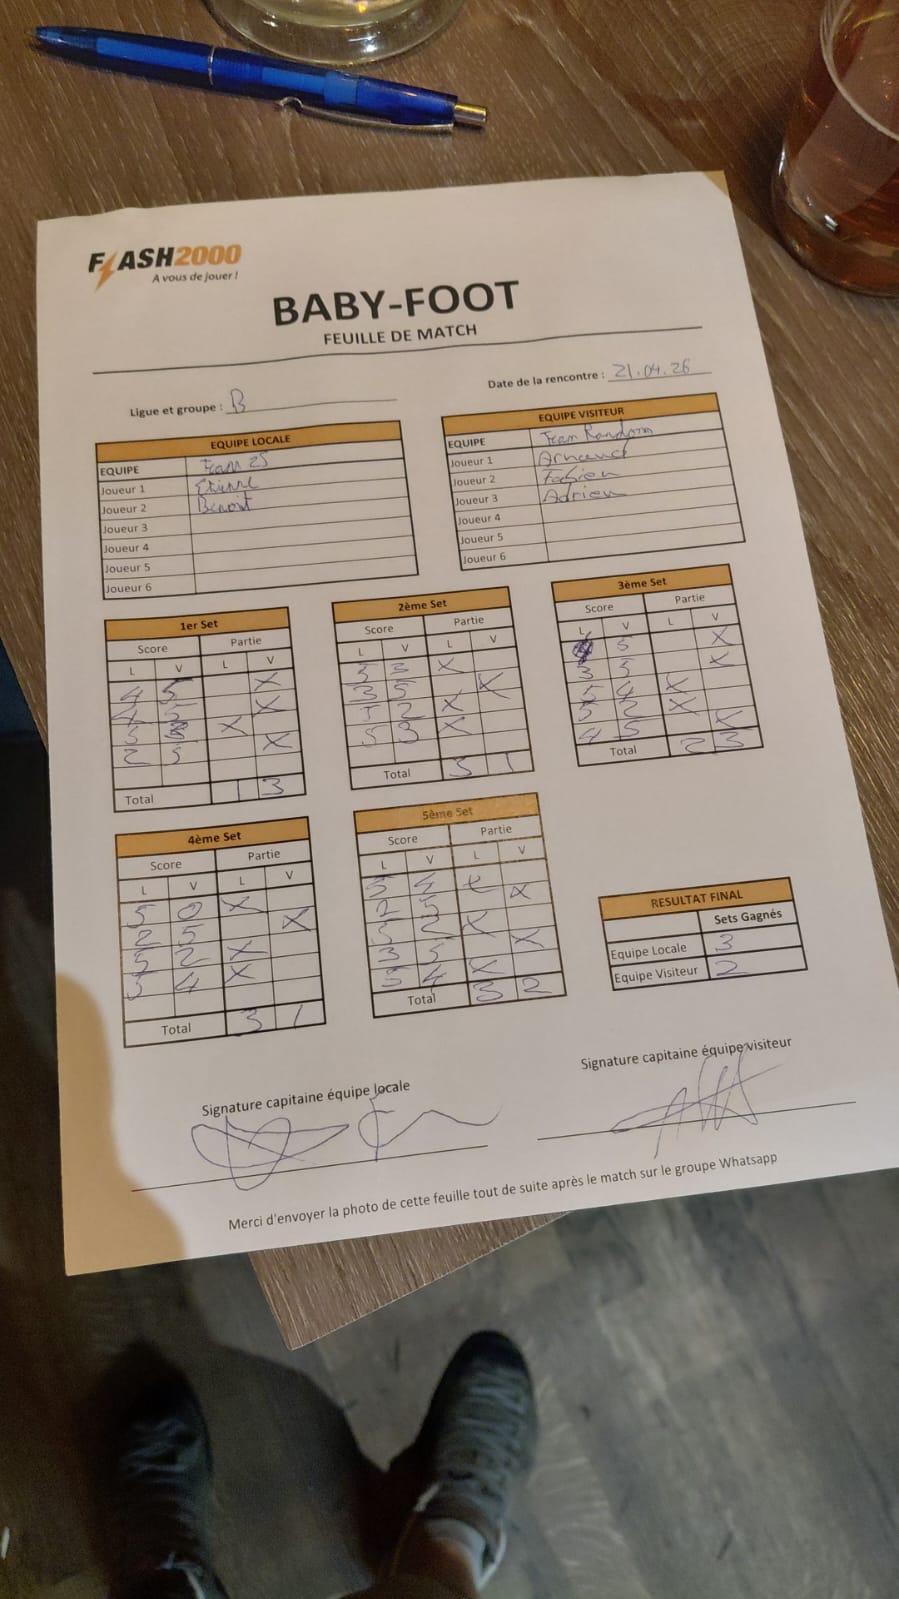 FLASH2000
A vous de jouer !
BABY-FOOT
FEUILLE DE MATCH
Ligue et groupe : B
Date de la rencontre : 21.04.26
EQUIPE LOCALE
EQUIPE Team 25
Joueur 1 Etienne
Joueur 2 Benoit
Joueur 3
Joueur 4
Joueur 5
Joueur 6
EQUIPE VISITEUR
EQUIPE Team Random
Joueur 1 Arnaud
Joueur 2 Fabien
Joueur 3 Adrien
Joueur 4
Joueur 5
Joueur 6
1er Set
Score Partie
L V L V
4 5 X
4 5 X
5 X
2 5 X
Total 1 3
2ème Set
Score Partie
L V L V
5 3 X
3 5 X
5 2 X
5 3 X
Total 3 1
3ème Set
Score Partie
L V L V
5 X
3 5 X
5 4 X
5 2 X
4 5 X
Total 2 3
4ème Set
Score Partie
L V L V
5 0 X
2 5 X
5 2 X
5 4 X
Total 3 1
5ème Set
Score Partie
L V L V
5 4 X
2 5 X
5 2 X
3 5 X
5 4 X
Total 3 2
RESULTAT FINAL
Sets Gagnés
Equipe Locale 3
Equipe Visiteur 2
Signature capitaine équipe locale
Signature capitaine équipe visiteur
Merci d'envoyer la photo de cette feuille tout de suite après le match sur le groupe Whatsapp